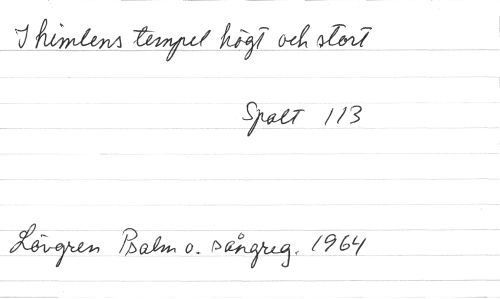 I himlens tempel högt och stort
Spalt 113
Lövgren Psalm o. sångreg. 1964